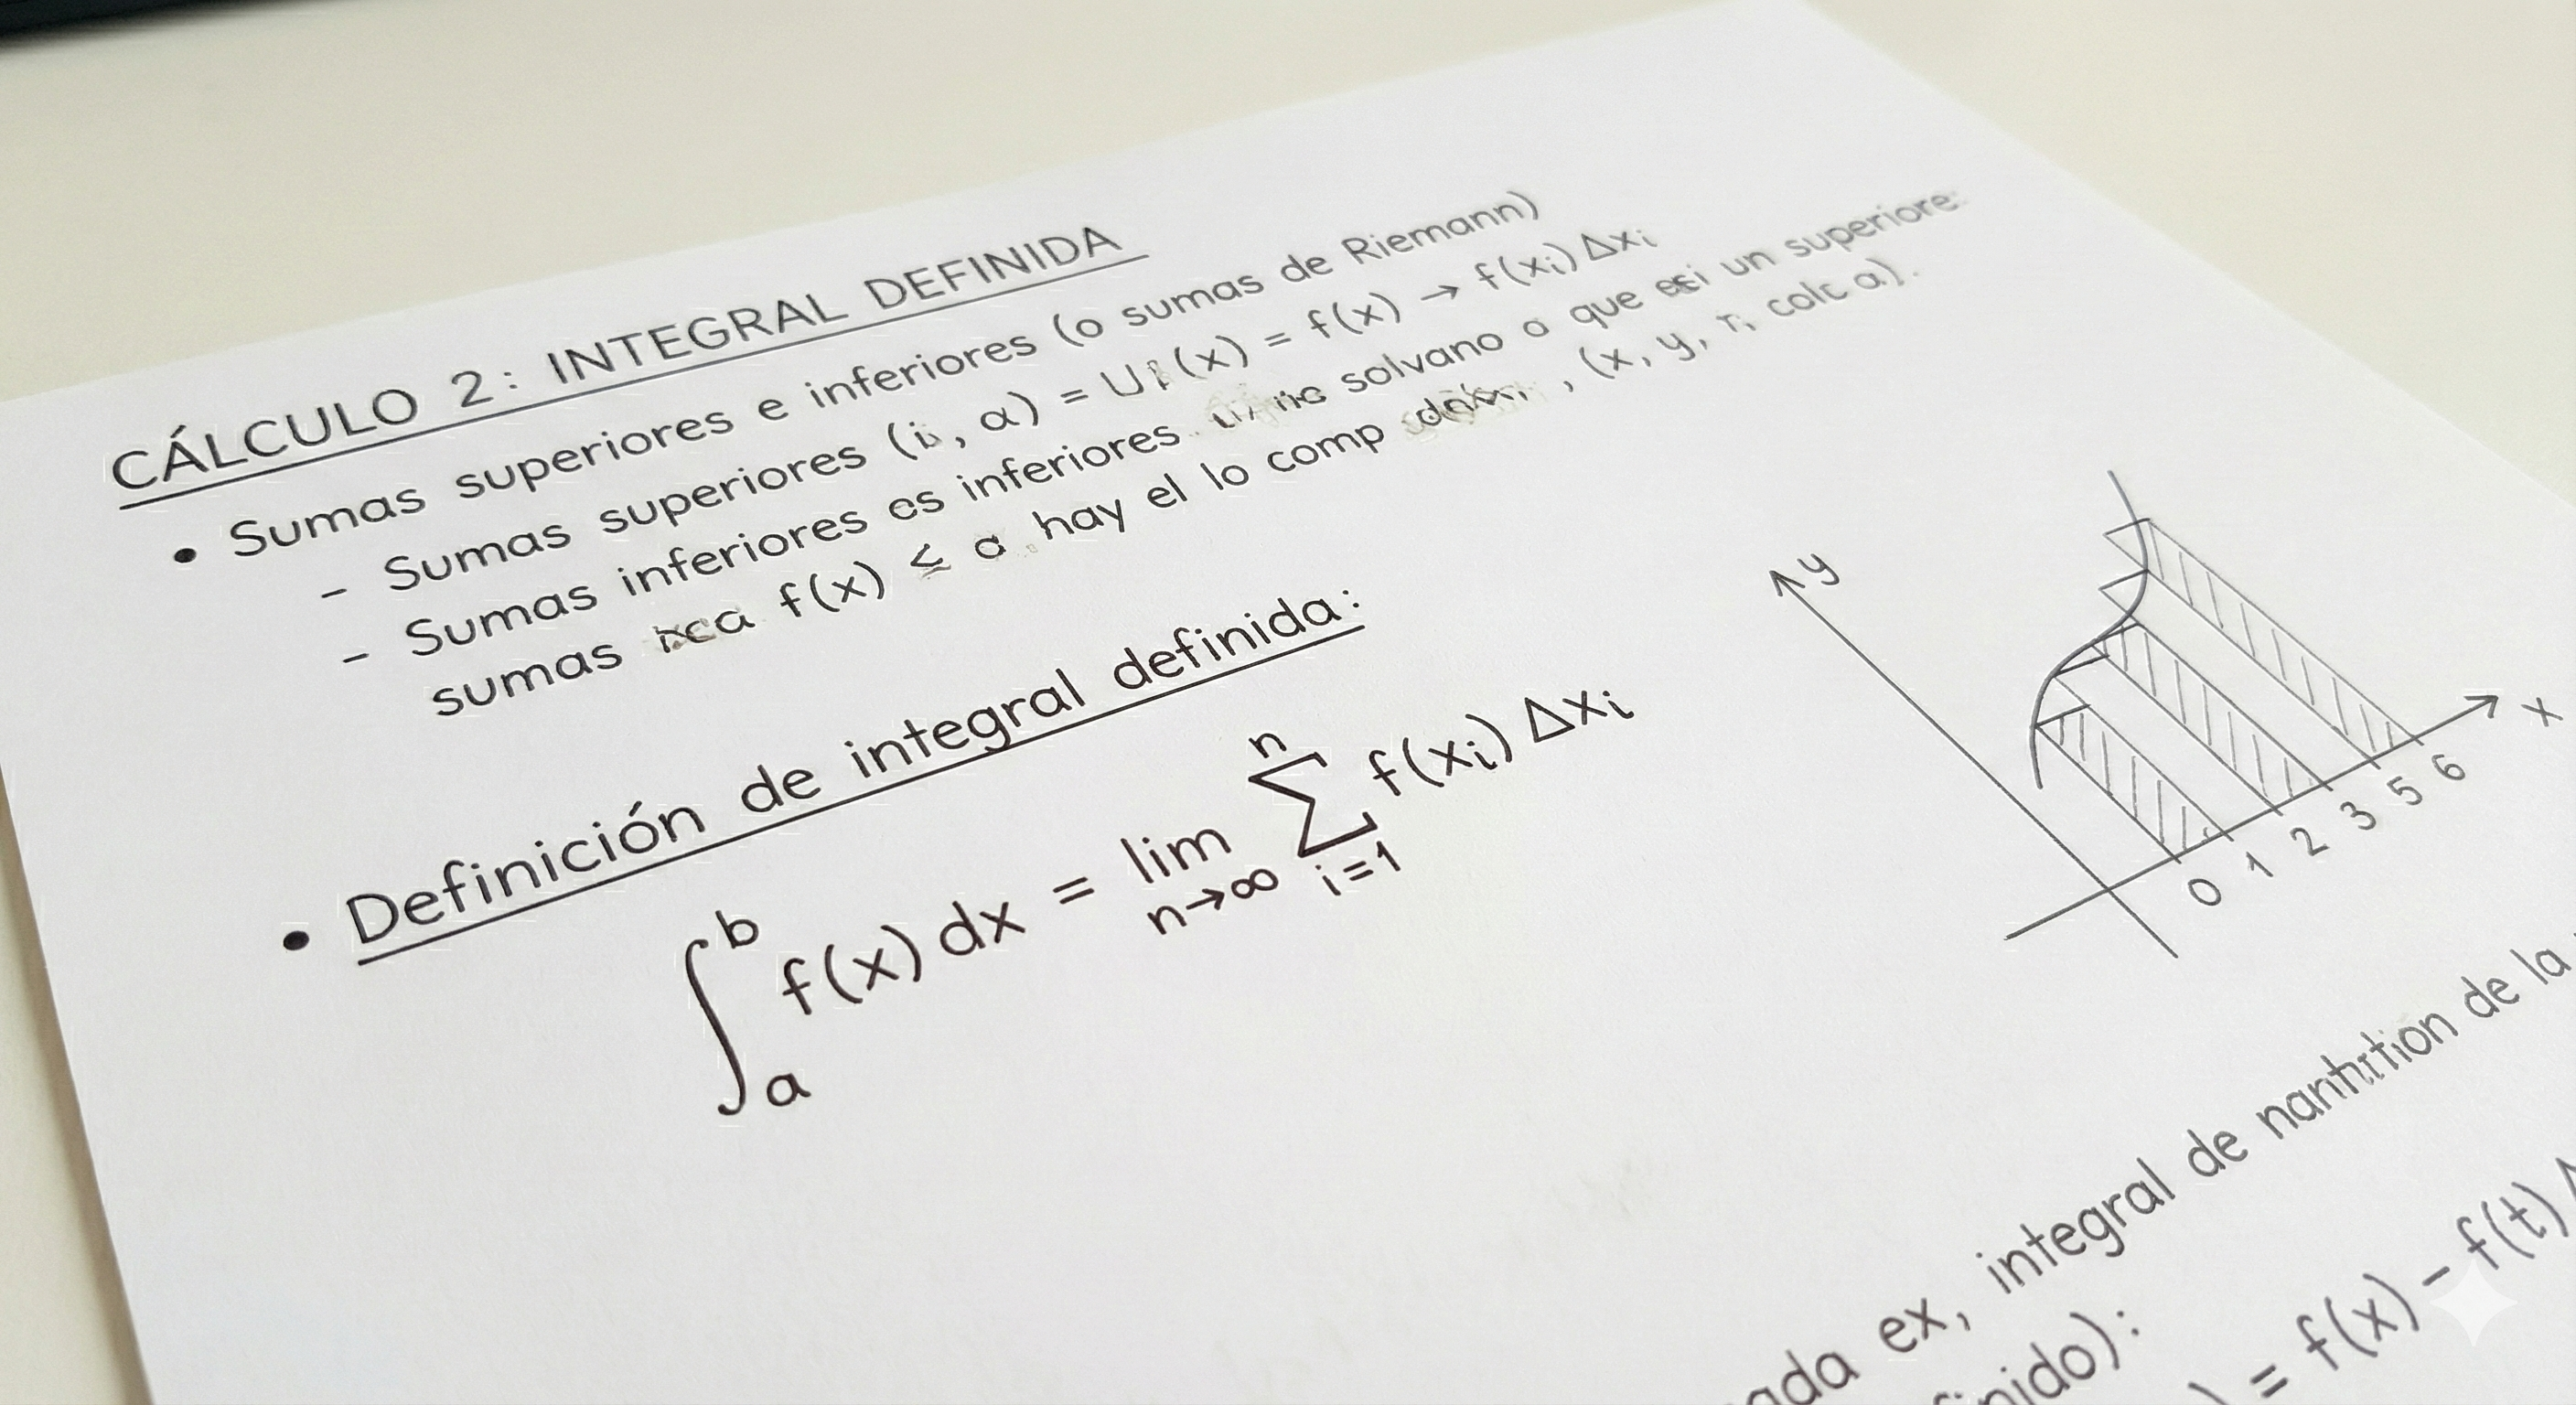 CÁLCULO 2: INTEGRAL DEFINIDA
• Sumas superiores e inferiores (o sumas de Riemann)
- Sumas superiores (i, a) = (x) = f(x) → f(xᵢ) Δxᵢ
- Sumas inferiores es inferiores solvano a que un superiore
sumas f(x) ≤ a hay el lo comp , (x, y, r, calc a).
• Definición de integral definida:
∫ₐᵇ f(x) dx = lim n→∞ ∑ⁿ i=1 f(xᵢ) Δxᵢ
y
x
0 1 2 3 5 6
ada ex, integral de de la
nido):
) = f(x) - f(t)